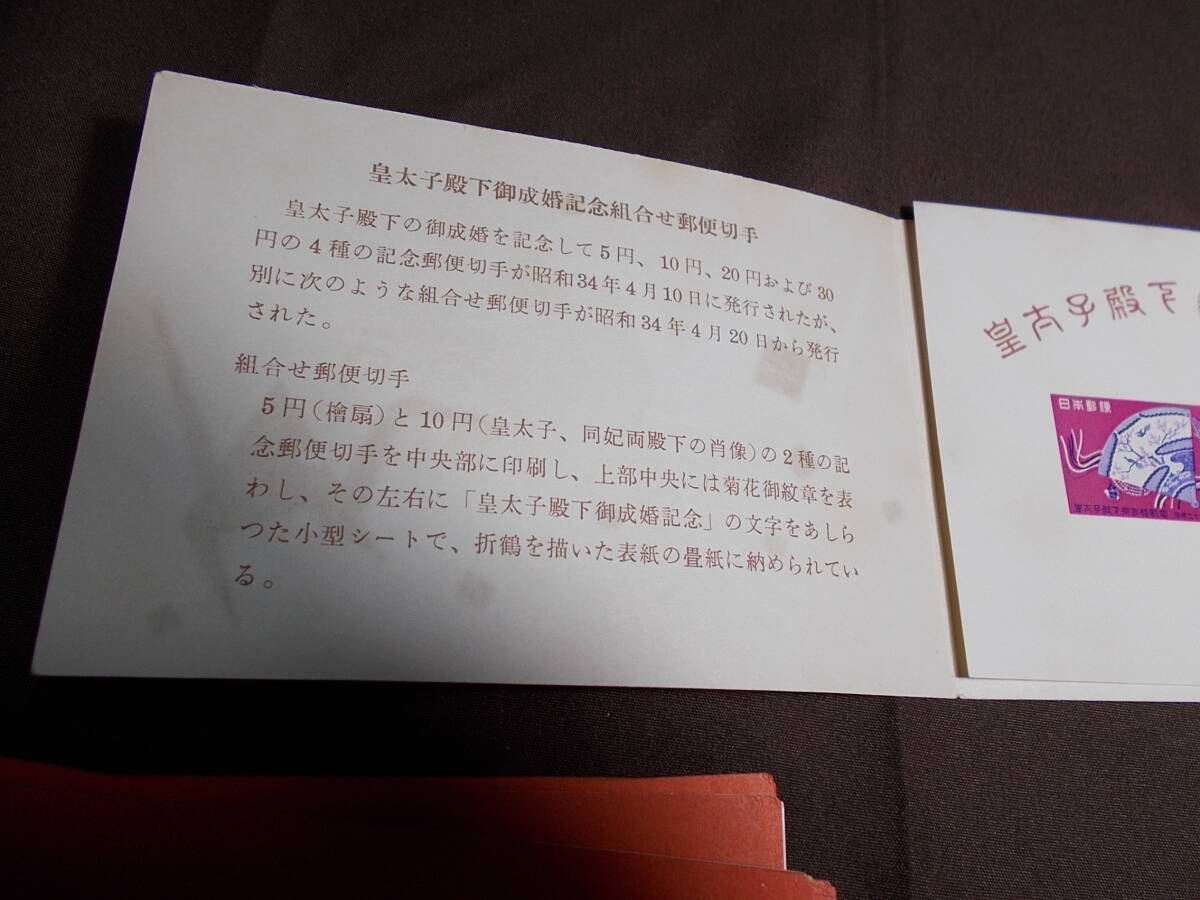 皇太子殿下御成婚記念組合せ郵便切手
皇太子殿下の御成婚を記念して5円、10円、20円および30
円の4種の記念郵便切手が昭和34年4月10日に発行されたが、
別に次のような組合せ郵便切手が昭和34年4月20日から発行
された。
組合せ郵便切手
5円(檜扇)と10円(皇太子、同妃両殿下の肖像)の2種の記
念郵便切手を中央部に印刷し、上部中央には菊花御紋章を表
わし、その左右に「皇太子殿下御成婚記念」の文字をあしら
つた小型シートで、折鶴を描いた表紙の畳紙に納められてい
る。
皇太子殿下
日本郵便